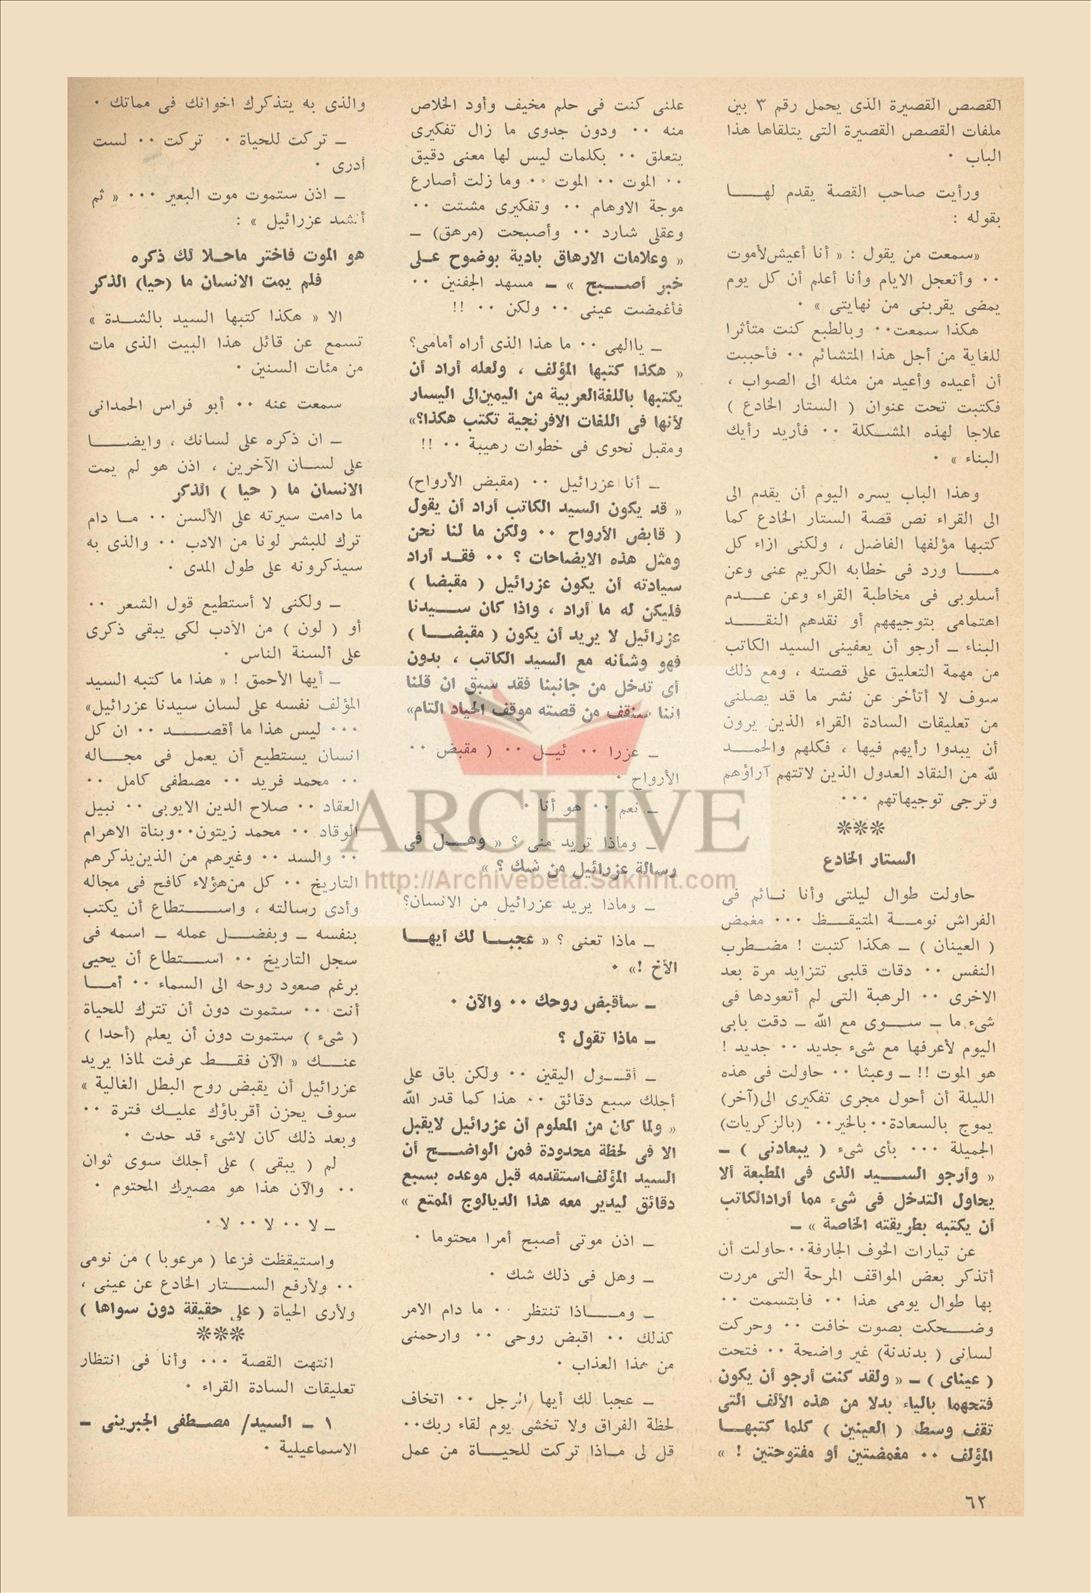 القصص القصيرة الذى يحمل رقم ٣ بين
ملفات القصص القصيرة التى يتلقاها هذا
الباب ٠
ورأيت صاحب القصة يقدم لهـــا
بقوله :
«سمعت من يقول : « أنا أعيش لأموت
٠٠ وأتعجل الايام وأنا أعلم أن كل يوم
يمضى يقربنى من نهايتى » ٠
هكذا سمعت٠٠ وبالطبع كنت متأثرا
للغاية من أجل هذا المتشائم ٠٠ فأحببت
أن أعيده وأعيد من مثله الى الصواب ،
فكتبت تحت عنوان ( الستار الخادع )
علاجا لهذه المشـكلة ٠٠ فأريد رأيك
البناء » ٠
وهذا الباب يسره اليوم أن يقدم الى
الى القراء نص قصة الستار الخادع كما
كتبها مؤلفها الفاضل ، ولكنى ازاء كل
مـــا ورد فى خطابه الكريم عنى وعن
أسلوبى فى مخاطبة القراء وعن عـــدم
اهتمامى بتوجيههم أو نقدهم النقـــد
البناء ــ أرجو أن يعفينى السيد الكاتب
من مهمة التعليق على قصته ، ومع ذلك
سوف لا أتأخر عن نشر ما قد يصلنى
من تعليقات السادة القراء الذين يرون
أن يبدوا رأيهم فيها ، فكلهم والحمـــد
لله من النقاد العدول الذين لاتتهم آراؤهم
وترجى توجيهاتهم ٠٠٠
***
الستار الخادع
حاولت طوال ليلتى وأنا نـائم فى
الفراش نومـــة المتيقـــظ ٠٠٠ مغمض
( العينان ) ــ هكذا كتبت ! مضـطرب
النفس ٠٠ دقات قلبى تتزايد مرة بعد
الاخرى ٠٠ الرهبة التى لم أتعودها فى
شىء ما ــ ســوى مع الله ــ دقت بابى
اليوم لأعرفها مع شىء جديد ٠٠ جديد !
هو الموت !! ــ وعبثا ٠٠ حاولت فى هذه
الليلة أن أحول مجرى تفكيرى الى(آخر)
يموج بالسعادة٠٠بالخير٠٠ (بالزكريات)
الجميلة ٠٠٠ بأى شىء ( يبعادنى ) ــ
« وأرجو الســـيد الذى فى المطبعة ألا
يحاول التدخل فى شىء مما أرادالكاتب
أن يكتبه بطريقته الخاصة » ــ
عن تيارات الخوف الجارفة٠٠حاولت أن
أتذكر بعض المواقف المرحة التى مررت
بها طوال يومى هذا ٠٠ فابتسمت ٠٠
وضـــحكت بصوت خافت ٠٠ وحركت
لسانى ( بدندنة) غير واضحة ٠٠ فتحت
( عيناى ) ــ « ولقد كنت أرجو أن يكون
فتحهما بالياء بدلا من هذه الألف التى
تقف وسط ( العينين ) كلما كتبهـــا
المؤلف ٠٠ مغمضتين أو مفتوحتين ! »
علنى كنت فى حلم مخيف وأود الخلاص
منه ٠٠ ودون جدوى ما زال تفكيرى
يتعلق ٠٠ بكلمات ليس لها معنى دقيق
٠٠ الموت ٠٠ الموت ٠٠ وما زلت أصارع
موجة الاوهام ٠٠ وتفكيرى مشتت ٠٠
وعقلى شارد ٠٠ وأصبحت (مرهق) ــ
« وعلامات الارهاق بادية بوضوح علـى
خبر أصـــبح » ــ مسهد الجفنين ٠٠
فأغمضت عينى ٠٠ ولكن ٠٠ !!
ــ ياالهى ٠٠ ما هذا الذى أراه أمامى؟
« هكذا كتبها المؤلف ، ولعله أراد أن
يكتبها باللغةالعربية من اليمين‌الى اليسار
لأنها فى اللغات الافرنجية تكتب هكذا؟»
ومقبل نحوى فى خطوات رهيبة ٠٠ !!
ــ أنا عزرائيل ٠٠ (مقبض الأرواح)
« قد يكون السيد الكاتب أراد أن يقول
( قابض الأرواح ٠٠ ولكن ما لنا نحن
ومثل هذه الايضاحات ؟ ٠٠ فقـد أراد
سيادته أن يكون عزرائيل ( مقبضا )
فليكن له ما أراد ، واذا كان ســـيدنا
عزرائيل لا يريد أن يكون ( مقبضـــا )
فهو وشأنه مع السيد الكاتب ، بدون
أى تدخل من جانبنا فقد سبق ان قلنا
اننا سنقف من قصته موقف الحياد التام»
ــ عزرا ٠٠ ئيـل ٠٠ ( مقبض ٠٠
الأرواح ٠
ــ نعم ٠٠ هو أنا ٠
ــ وماذا تريد منى ؟ « وهـــل فى
رسالة عزرائيل من شك ؟ »
ــ وماذا يريد عزرائيل من الانسان؟
ــ ماذا تعنى ؟ « عجبـــا لك أيهـــا
الأخ !» ٠
ــ سأقبض روحك ٠٠ والآن ٠
ــ ماذا تقول ؟
ــ أقـــول اليقين ٠٠ ولكن باق على
أجلك سبع دقائق ٠٠ هذا كما قدر الله
« ولما كان من المعلوم أن عزرائيل لايقبل
الا فى لحظة محدودة فمن الواضـــح أن
السيد المؤلف‌استقدمه قبل موعده بسبع
دقائق ليدير معه هذا الديالوج الممتع »
ــ اذن موتى أصبح أمرا محتوما ٠
ــ وهل فى ذلك شك ٠
ــ ومـــاذا تنتظر ٠٠ ما دام الامر
كذلك ٠٠ اقبض روحى ٠٠ وارحمنى
من هذا العذاب ٠
ــ عجبا لك أيها الرجل ٠٠ اتخاف
لحظة الفراق ولا تخشى يوم لقاء ربك٠٠
قل لى مـاذا تركت للحيـاة من عمل
والذى به يتذكرك اخوانك فى مماتك ٠
ــ تركت للحياة ٠ تركت ٠٠ لست
أدرى ٠
ــ اذن ستموت موت البعير ٠٠٠ « ثم
أنشد عزرائيل » :
هو الموت فاختر ماحـلا لك ذكره
فلم يمت الانسان ما (حيا) الذكر
الا « هكذا كتبها السيد بالشـدة »
تسمع عن قائل هذا البيت الذى مات
من مئات السنين ٠
سمعت عنه ٠٠ أبو فراس الحمدانى
ــ ان ذكره على لسانك ، وايضـــا
على لسـان الآخرين ، اذن هو لم يمت
الانسان ما ( حيا ) الذكر
ما دامت سيرته على الألسن ٠٠ مـا دام
ترك للبشر لونا من الادب ٠٠ والذى به
سيذكرونه على طول المدى ٠
ــ ولكنى لا أستطيع قول الشعر ٠٠
أو ( لون ) من الأدب لكى يبقى ذكرى
على ألسنة الناس ٠
ــ أيها الأحمق ! « هذا ما كتبه السيد
المؤلف نفسه على لسان سيدنا عزرائيل»
٠٠٠ ليس هذا ما أقصـــد ٠٠ ان كل
انسان يستطيع أن يعمل فى مجـاله
٠٠ محمد فريد ٠٠ مصطفى كامل ٠٠
العقاد ٠٠ صلاح الدين الايوبى ٠٠ نبيل
الوقاد ٠٠ محمد زيتون٠٠وبناة الاهرام
٠٠ والسد ٠٠ وغيرهم من الذين‌يذكرهم
التاريخ ٠٠ كل من‌هؤلاء كافح فى مجاله
وأدى رسالته ، واســـتطاع أن يكتب
بنفسه ــ وبفضـــل عمله ــ اسمه فى
سجل التاريخ ٠٠ اســـتطاع أن يحيى
برغم صعود روحه الى السماء ٠٠ أمـــا
أنت ٠٠ ستموت دون أن تترك للحياة
( شىء ) ستموت دون أن يعلم (أحدا )
عنـــك « الآن فقـــط عرفت لماذا يريد
عزرائيل أن يقبض روح البطل الغالية »
سوف يحزن أقرباؤك عليـك فترة ٠٠
وبعد ذلك كان لاشىء قد حدث ٠
لم ( يبقى ) على أجلك سوى ثوان
٠٠ والآن هذا هو مصيرك المحتوم ٠
ــ لا ٠٠ لا ٠٠ لا ٠
واستيقظت فزعا ( مرعوبا ) من نومى
٠٠ ولأرفع الســـتار الخادع عن عينى ،
ولأرى الحياة ( على حقيقة دون سواها )
***
انتهت القصة ٠٠٠ وأنا فى انتظار
تعليقات السادة القراء ٠
١ ــ السيد/ مصـطفى الجبرينى ــ
الاسماعيلية ٠
٦٢
ARCHIVE
http://Archivebeta.Sakhrit.com